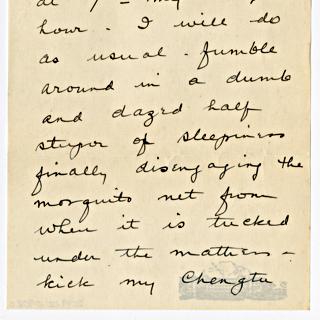 hour - I will do
as usual - fumble
around in a dumb
and dazed half
stupor of sleepiness
finally disengaging the
mosquito net from
when it is tucked
under the mattress -
kick my Chengtu